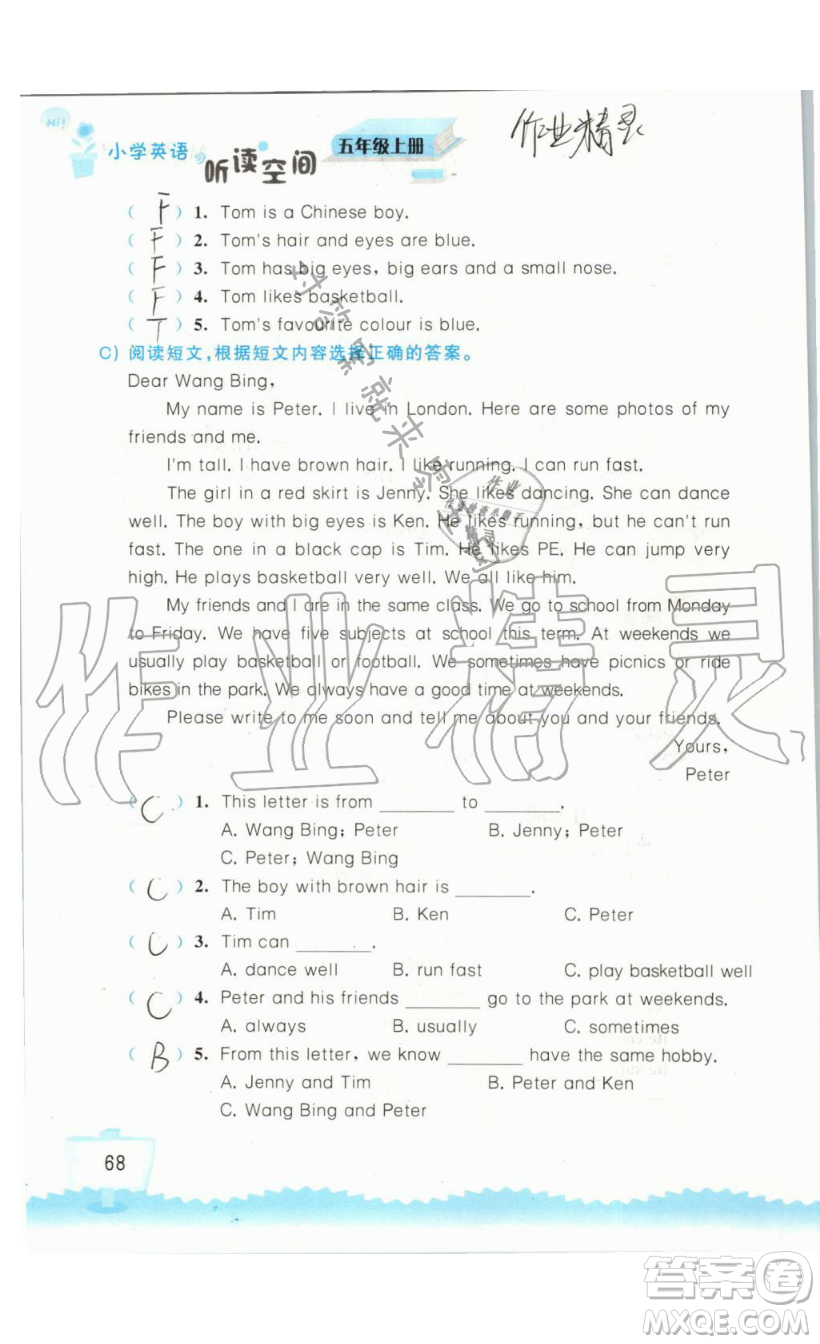 Hi!
小学英语 听读空间 五年级上册
作业精灵
( F ) 1. Tom is a Chinese boy.
( F ) 2. Tom's hair and eyes are blue.
( F ) 3. Tom has big eyes, big ears and a small nose.
( F ) 4. Tom likes basketball.
( T ) 5. Tom's favourite colour is blue.
C) 阅读短文,根据短文内容选择正确的答案。
Dear Wang Bing,
My name is Peter. I live in London. Here are some photos of my
friends and me.
I'm tall. I have brown hair. I like running. I can run fast.
The girl in a red skirt is Jenny. She likes dancing. She can dance
well. The boy with big eyes is Ken. He likes running, but he can't run
fast. The one in a black cap is Tim. He likes PE. He can jump very
high. He plays basketball very well. We all like him.
My friends and I are in the same class. We go to school from Monday
to Friday. We have five subjects at school this term. At weekends we
usually play basketball or football. We sometimes have picnics or ride
bikes in the park. We always have a good time at weekends.
Please write to me soon and tell me about you and your friends.
Yours,
Peter
( C ) 1. This letter is from ________ to ________.
A. Wang Bing; Peter B. Jenny; Peter
C. Peter; Wang Bing
( C ) 2. The boy with brown hair is ________.
A. Tim B. Ken C. Peter
( C ) 3. Tim can ________.
A. dance well B. run fast C. play basketball well
( C ) 4. Peter and his friends ________ go to the park at weekends.
A. always B. usually C. sometimes
( B ) 5. From this letter, we know ________ have the same hobby.
A. Jenny and Tim B. Peter and Ken
C. Wang Bing and Peter
68
作业精灵
答案卷
MXQE.COM